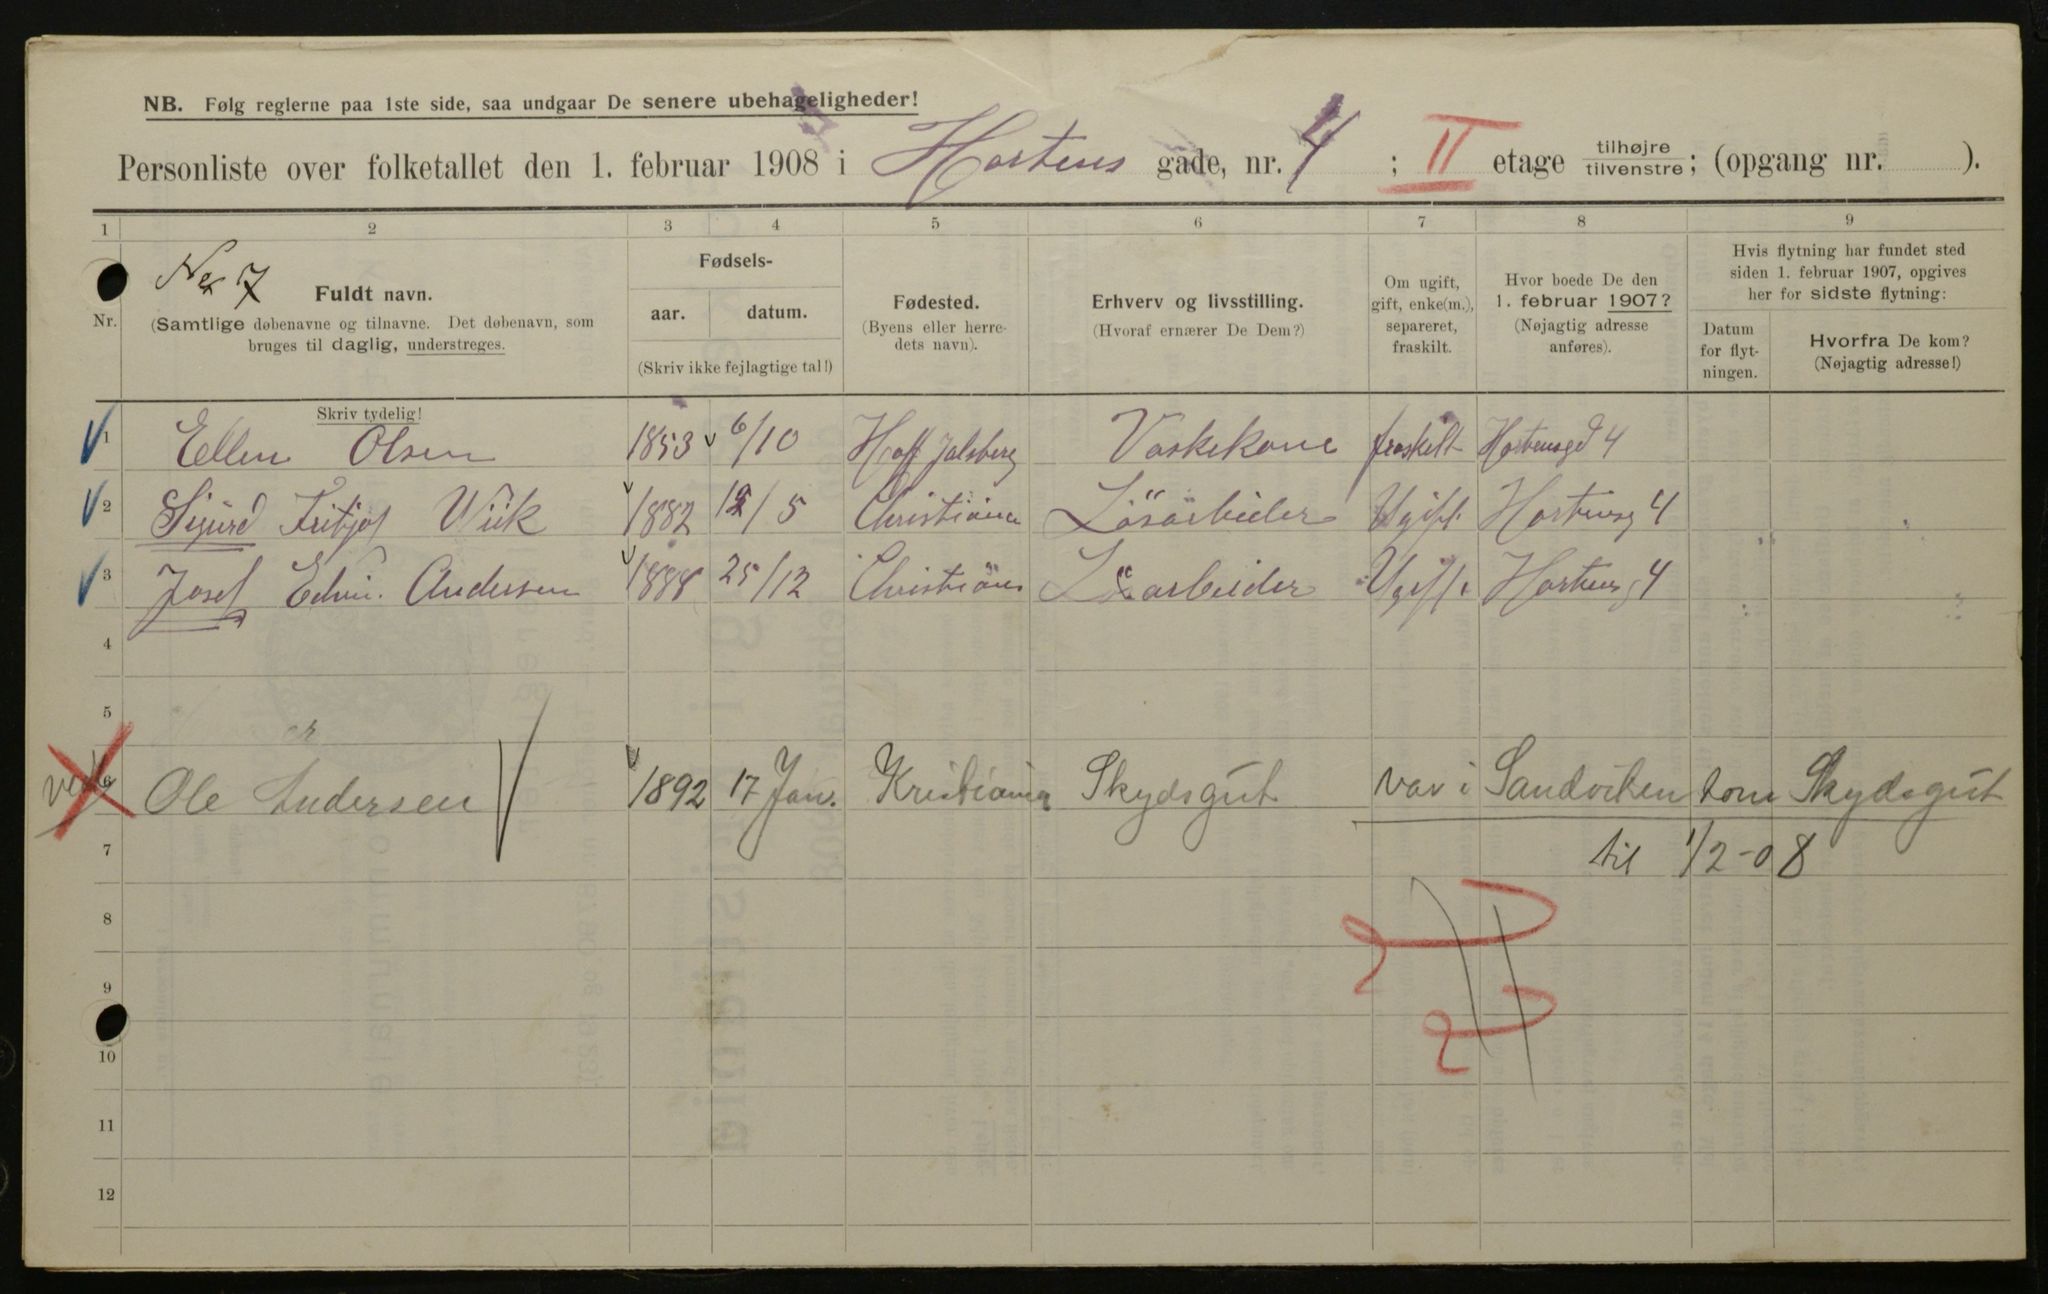 NB. Følg reglerne paa 1ste side, saa undgaar De senere ubehageligheder!
Personliste over folketallet den 1. februar 1908 i Hortens gade, nr. 4 ; II etage tilhøjre tilvenstre; (opgang nr. ).
1 2 3 4 5 6 7 8 9
7
Nr.
Fuldt navn.
(Samtlige døbenavne og tilnavne. Det døbenavn, som
bruges til daglig, understreges.
Skriv tydelig!
Fødsels-
aar. datum.
(Skriv ikke fejlagtige tal!)
Fødested.
(Byens eller herre-
dets navn).
Erhverv og livsstilling.
(Hvoraf ernærer De Dem?)
Om ugift,
gift, enke(m.),
separeret,
fraskilt.
Hvor boede De den
1. februar 1907?
(Nøjagtig adresse
anføres).
Hvis flytning har fundet sted
siden 1. februar 1907, opgives
her for sidste flytning:
Datum
for flyt-
ningen.
Hvorfra De kom?
(Nøjagtig adresse!)
1 Ellen Olsen 1853 6/10 Hoff Jalsberg Vaskekone fraskelt Hortensgd 4
2 Sigurd Fritjof Wiik 1882 12/5 Christiania Løsarbeider Ugift Hortensg 4
3 Josef Edvin. Andersen 1888 25/12 Christiania Løsarbeider Ugift Hortensg 4
4
5
6 Ole Andersen 1892 17 Jan. Kristiania Skydsgut var i Sandviken som Skydsgut
7 til 1/2-08
8
9
10
11
12